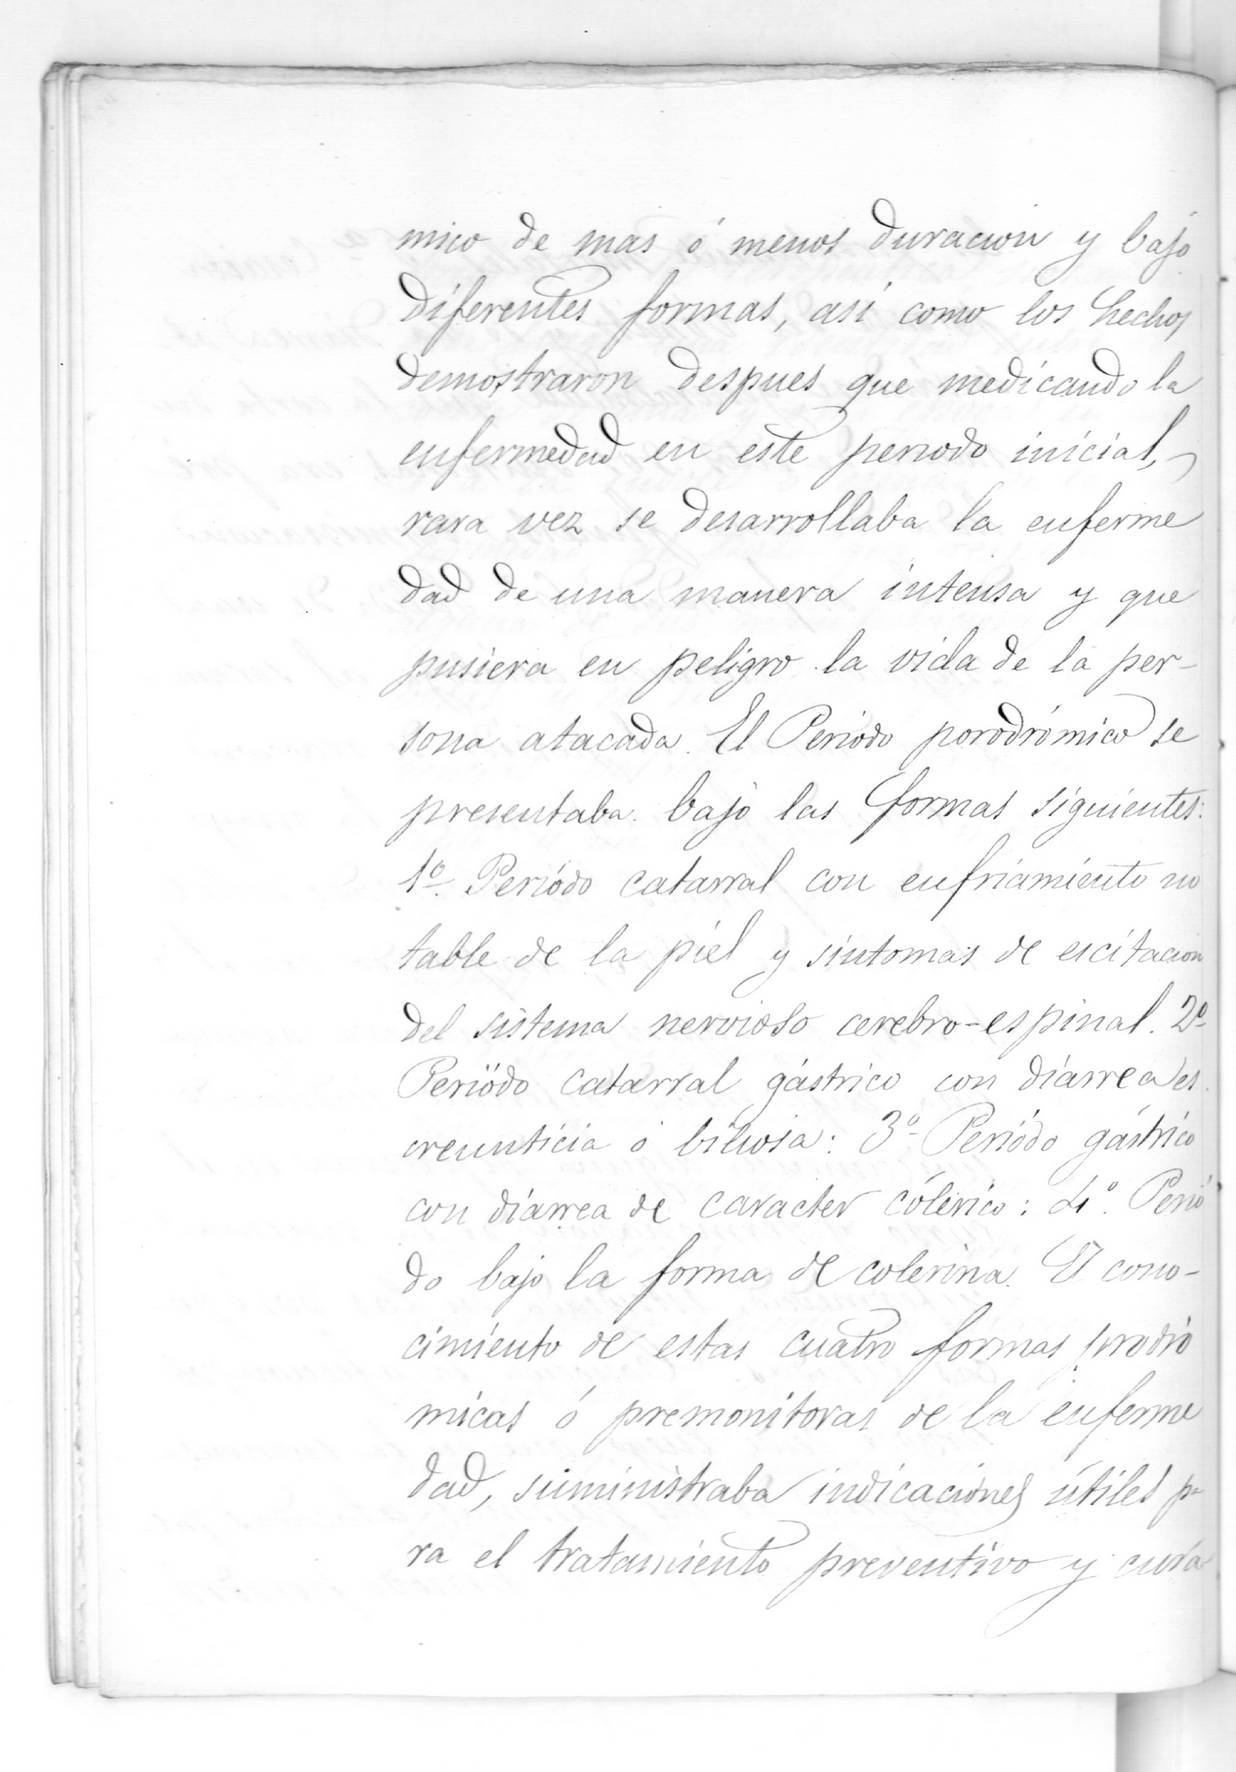 mico de mas ó menos duracion y bajo
diferentes formas, asi como los hechos
demostraron despues que medicando la
enfermedad en este periodo inicial,
rara vez se desarrollaba la enferme
dad de una manera intensa y que
pusiera en peligro la vida de la per-
sona atacada. El Periódo porodrómico se
presentaba bajo las formas siguientes:
1º. Periódo catarral con enfriamiento no
table de la piel y sintomas de escitacion
del sistema nervioso cerebro-espinal. 2º
Periódo catarral gástrico con diarrea es
crementicia ó biliosa: 3º Periódo gástrico
con diarrea de caracter cólerico: 4º. Perió
do bajo la forma de colerina. El cono-
cimiento de estas cuatro formas prodró
micas ó premonitoras de la enferme
dad, suministraba indicaciones útiles pa
ra el tratamiento preventivo y cura